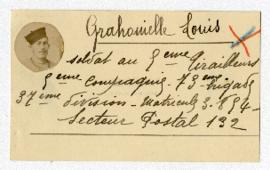 Grahamielle Louis
soldat au 9eme Tirailleurs
9eme Compagnie - 73eme brigade
37eme Division - Matricule 3.854 -
Secteur Postal 132